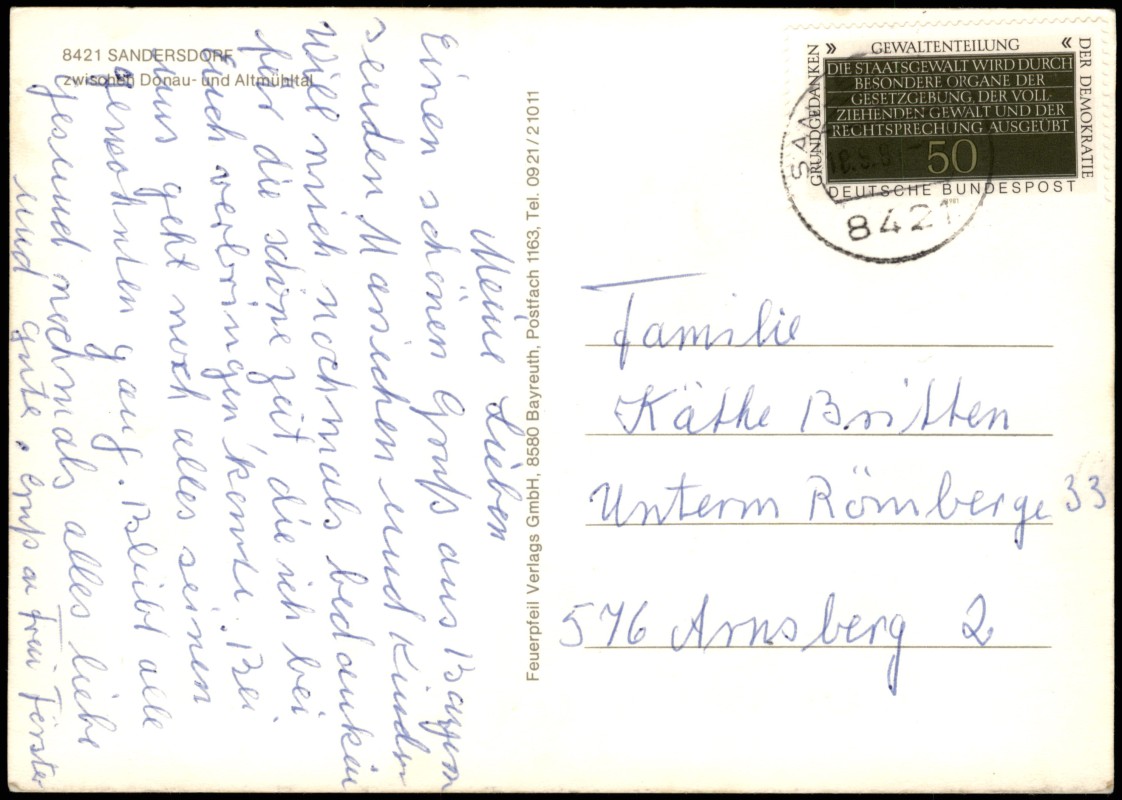 8421 SANDERSDORF
zwischen Donau- und Altmühltal
Meine Lieben
Einen schönen Gruß aus Bayern
senden Marichen und Kinder
Will mich nochmals bedanken
für die schöne Zeit, die ich bei
Euch verbringen konnte. Bei
uns geht noch alles seinen
gewohnten gang. Bleibt alle
gesund nochmals alles liebe
und gute. Gruß an Frau Förster
Feuerpfeil Verlags GmbH, 8580 Bayreuth, Postfach 1163, Tel. 0921/21011
GRUNDGEDANKEN
» GEWALTENTEILUNG «
DER DEMOKRATIE
DIE STAATSGEWALT WIRD DURCH
BESONDERE ORGANE DER
GESETZGEBUNG, DER VOLL-
ZIEHENDEN GEWALT UND DER
RECHTSPRECHUNG AUSGEÜBT
50
DEUTSCHE BUNDESPOST
1981
8421
Familie
Käthe Britten
Unterm Römberge 33
576 Arnsberg 2